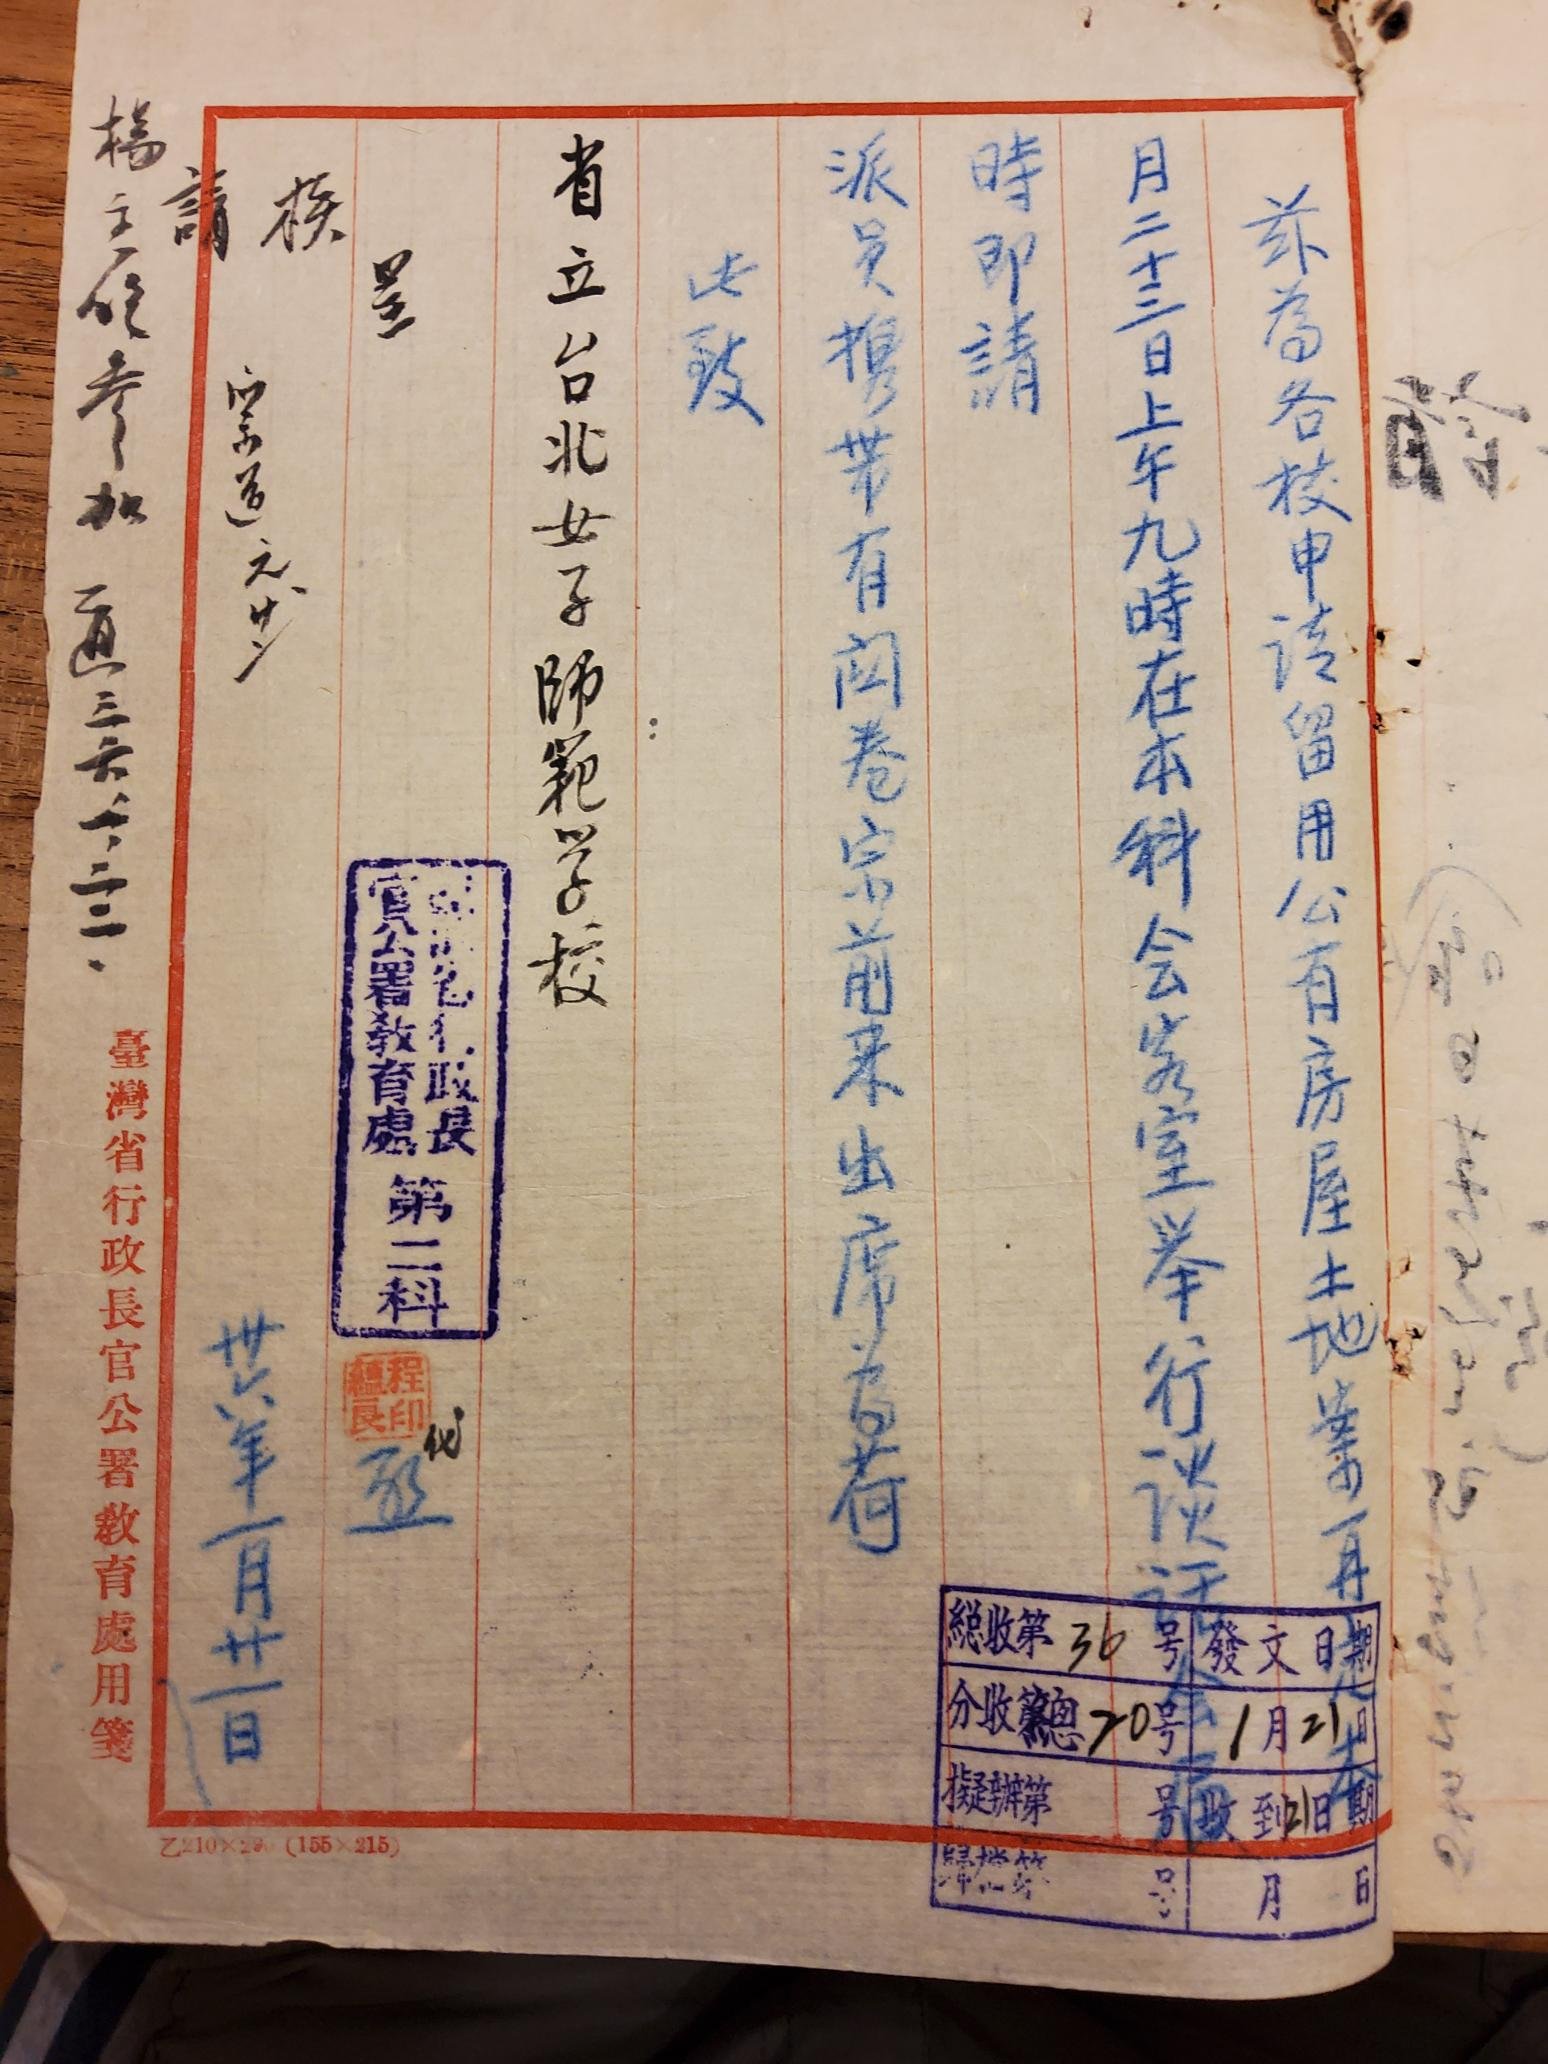 茲為各校申請留用公有房屋土地案再定本
月二十三日上午九時在本科会客室举行談話会屆
時即請
派員携带有関卷宗前来出席為荷
此致
省立台北女子師範学校
臺灣省行政長
官公署教育處
第二科
程印
蘊良
代
啟
卅六年一月廿一日
呈
核
宗道 元、廿一
請
楊主任參加
三六、一、二二、
臺灣省行政長官公署教育處用箋
乙210×290 (155×215)
総收第36号 發文日期
分收第總20号 1月21日
擬辦第 号 收到21日期
歸檔第 号 月 日